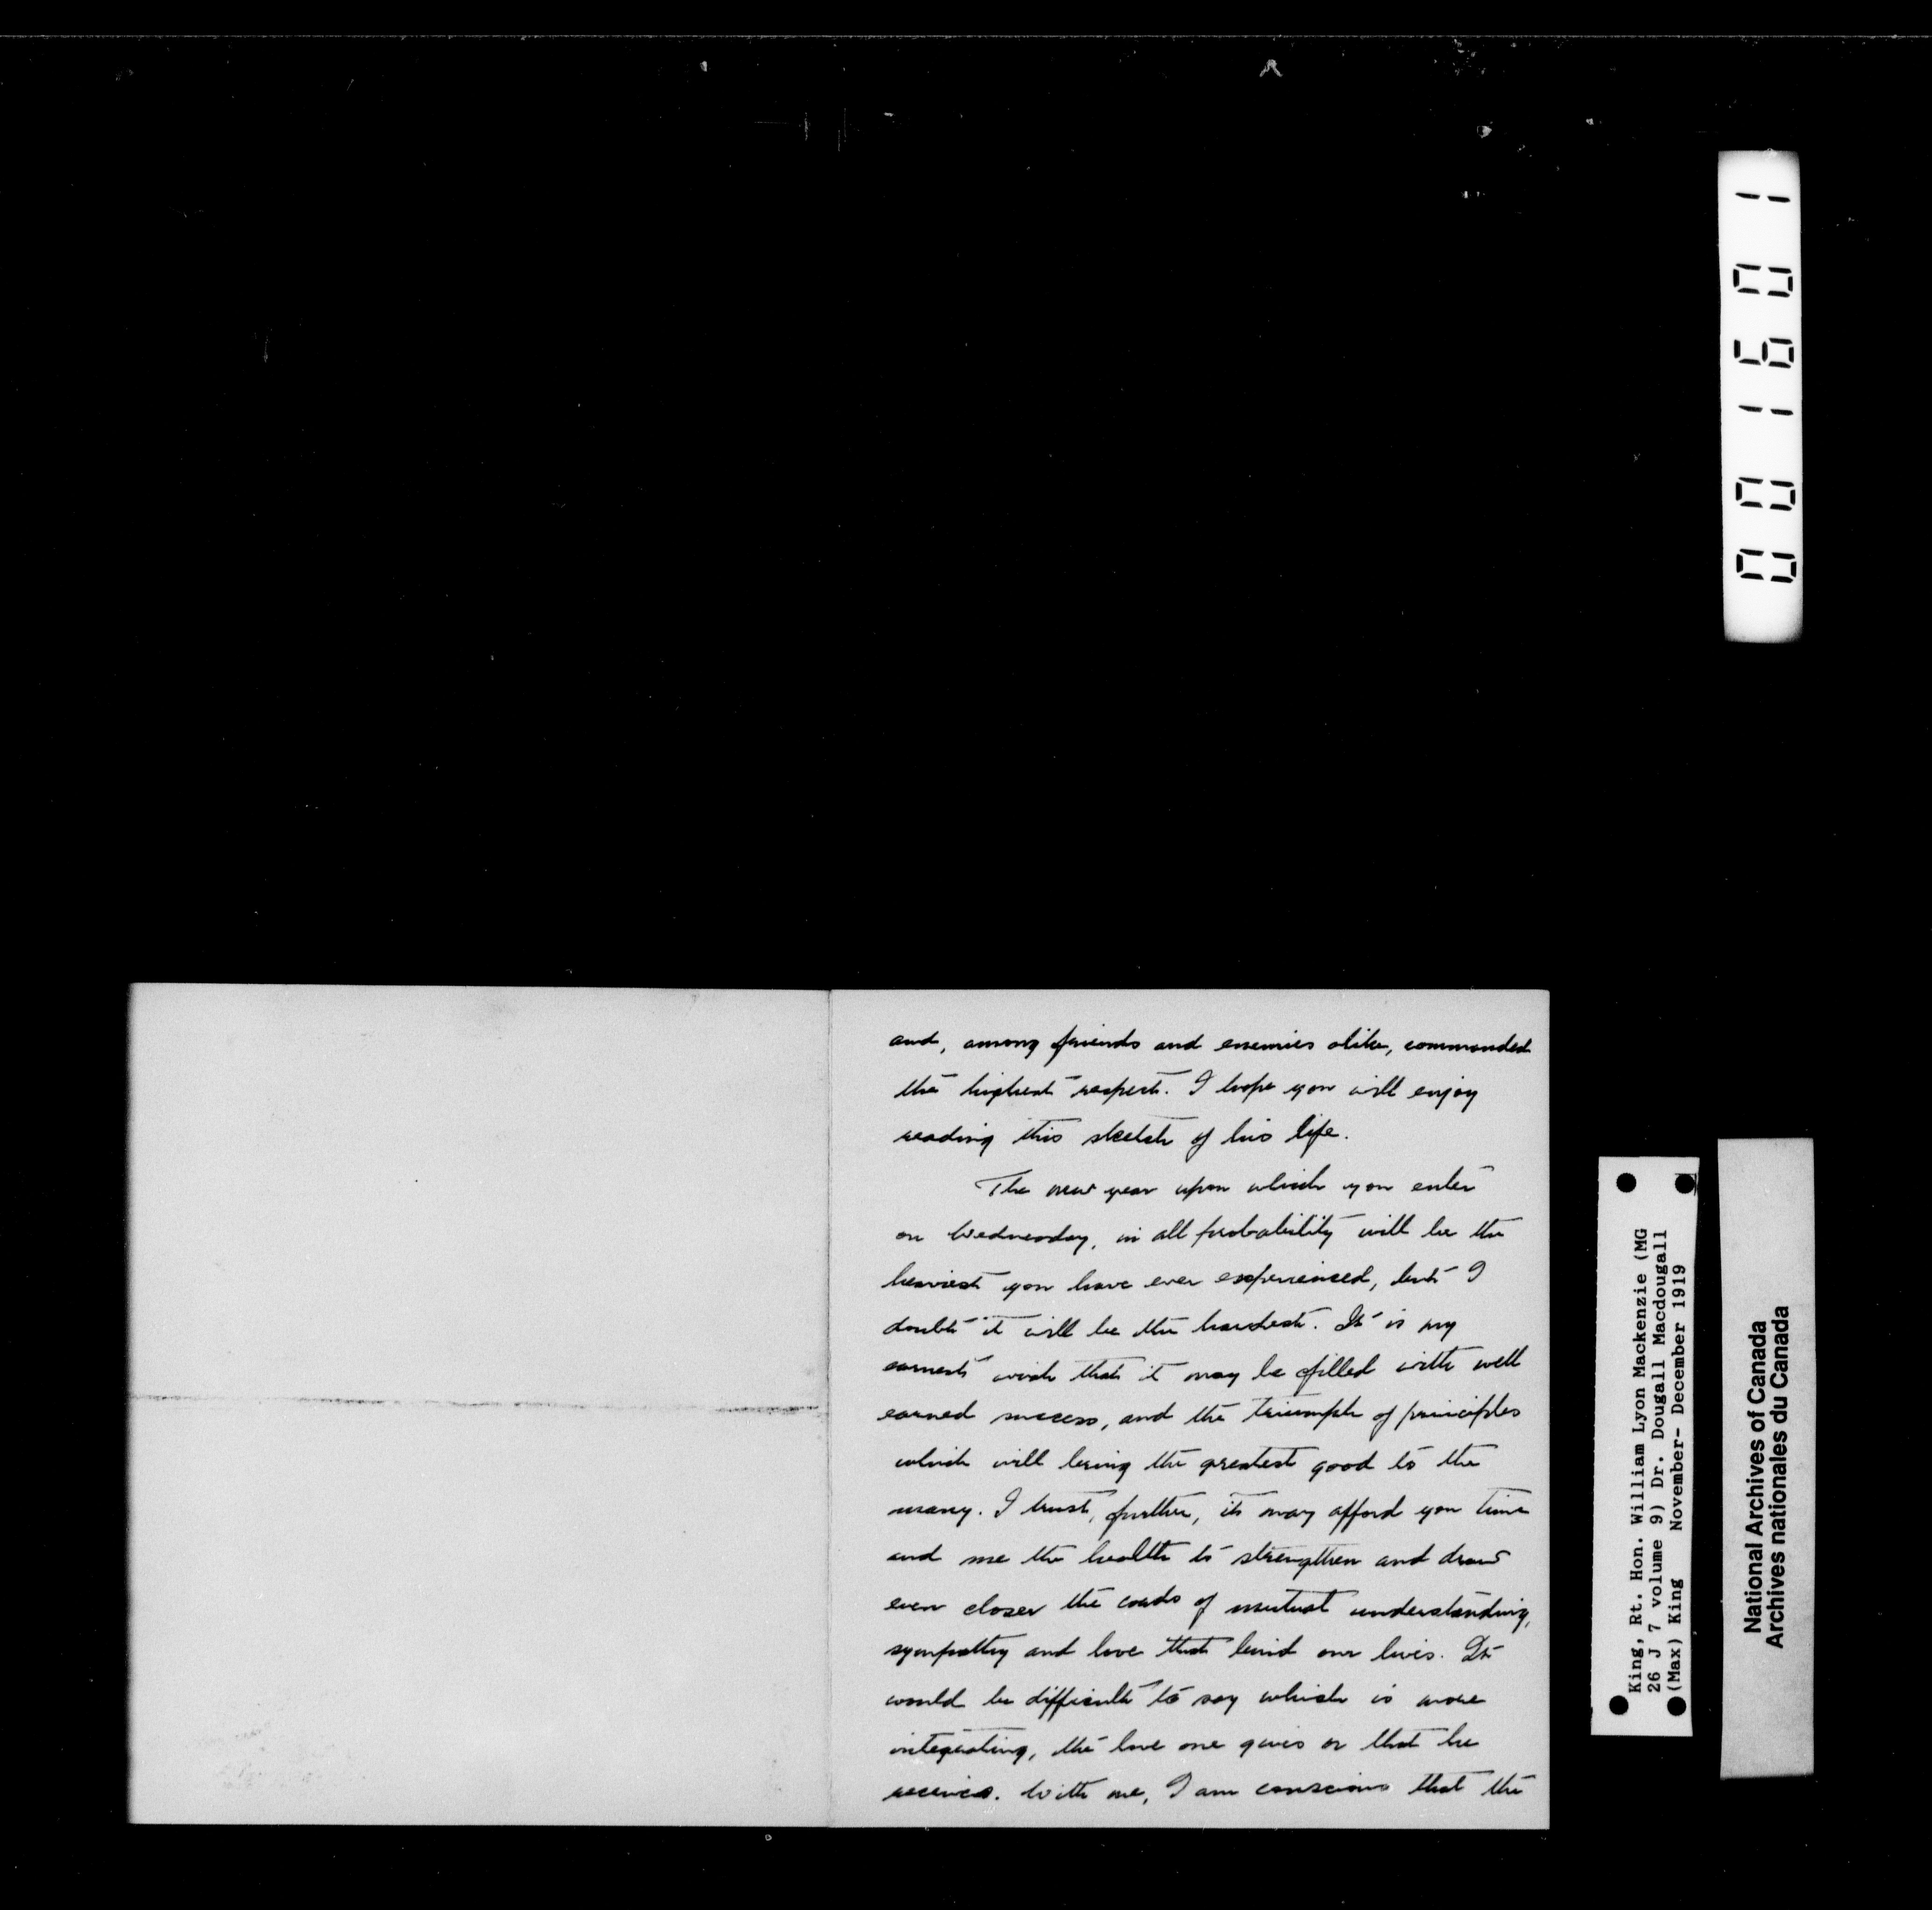 and, among friends and enemies alike, commanded
the highest respect. I hope you will enjoy
reading this sketch of his life.
The new year upon which you enter
on Wednesday, in all probability will be the
heaviest you have ever experienced, but I
doubt it will be the hardest. It is my
earnest wish that it may be filled with well
earned success, and the triumph of principles
which will bring the greatest good to the
many. I trust, further, it may afford you time
and me the health to strengthen and draw
even closer the cords of mutual understanding,
sympathy and love that bind our lives. It
would be difficult to say which is more
integrating, the love one gives or that he
receives. With me, I am conscious that the
001601
King, Rt. Hon. William Lyon Mackenzie (MG
26 J 7 volume 9) Dr. Dougall Macdougall
(Max) King November- December 1919
National Archives of Canada
Archives nationales du Canada